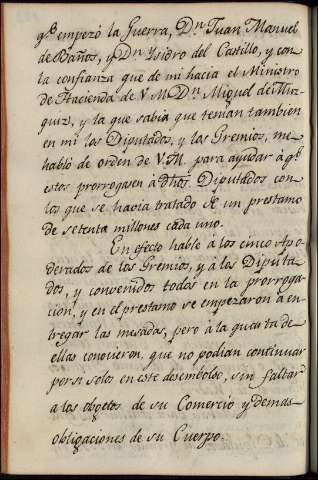 q.e empezó la Guerra, D.n Juan Manuel
de Baños, y D.n Ysidro del Castillo, y con
la confianza que de mi hacia el Ministro
de Hacienda de V M D.n Miguel de Muz
quiz, y la que sabia que tenian tambien
en mi los Diputados, y los Gremios, me
habló de orden de V.M. para ayudar à q.e
estos prorrogasen à dhos. Diputados con
los que se havia tratado de un prestamo
de setenta millones cada uno.
En efecto hable à los cinco Apo
derados de los Gremios, y à los Diputa
dos, y convenidos todos en la prorroga
cion, y en el prestamo se empezaron à en
tregar las mesadas, pero à la quarta de
ellas conocieron, que no podian continuar
por si solos en este desembolso, sin faltar
a los obgetos de su Comercio y demas
obligaciones de su Cuerpo.